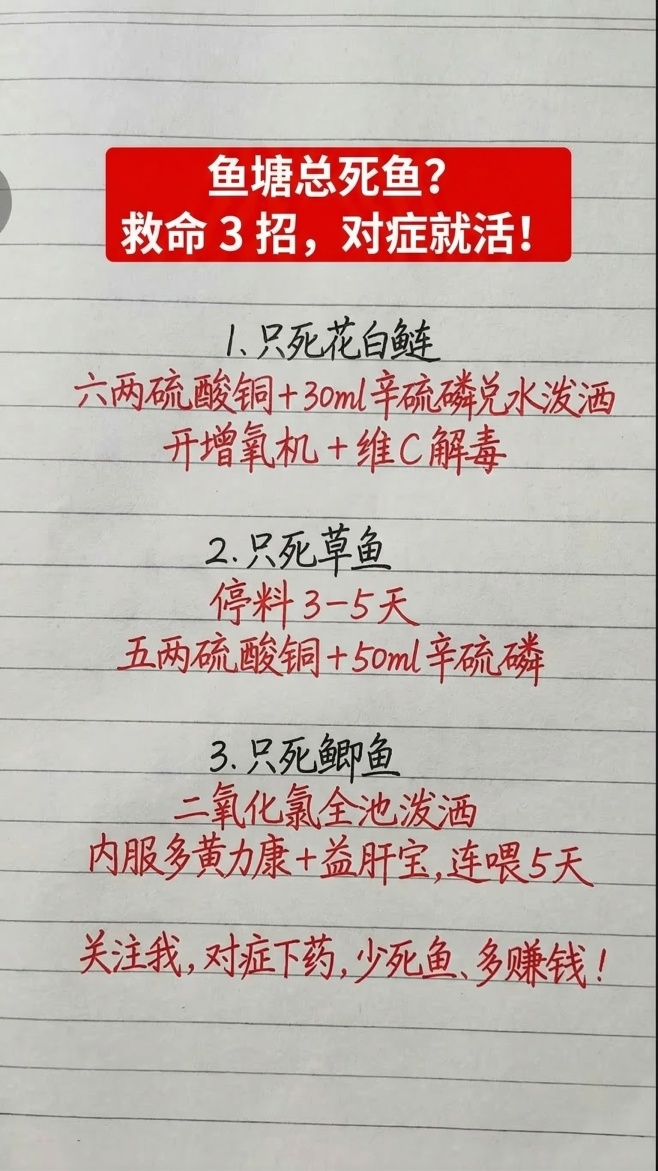 鱼塘总死鱼？
救命 3 招，对症就活！
1、只死花白鲢
六两硫酸铜+30ml辛硫磷兑水泼洒
开增氧机+维C解毒
2.只死草鱼
停料3-5天
五两硫酸铜+50ml辛硫磷
3.只死鲫鱼
二氧化氯全池泼洒
内服多黄力康+益肝宝,连喂5天
关注我,对症下药,少死鱼、多赚钱！